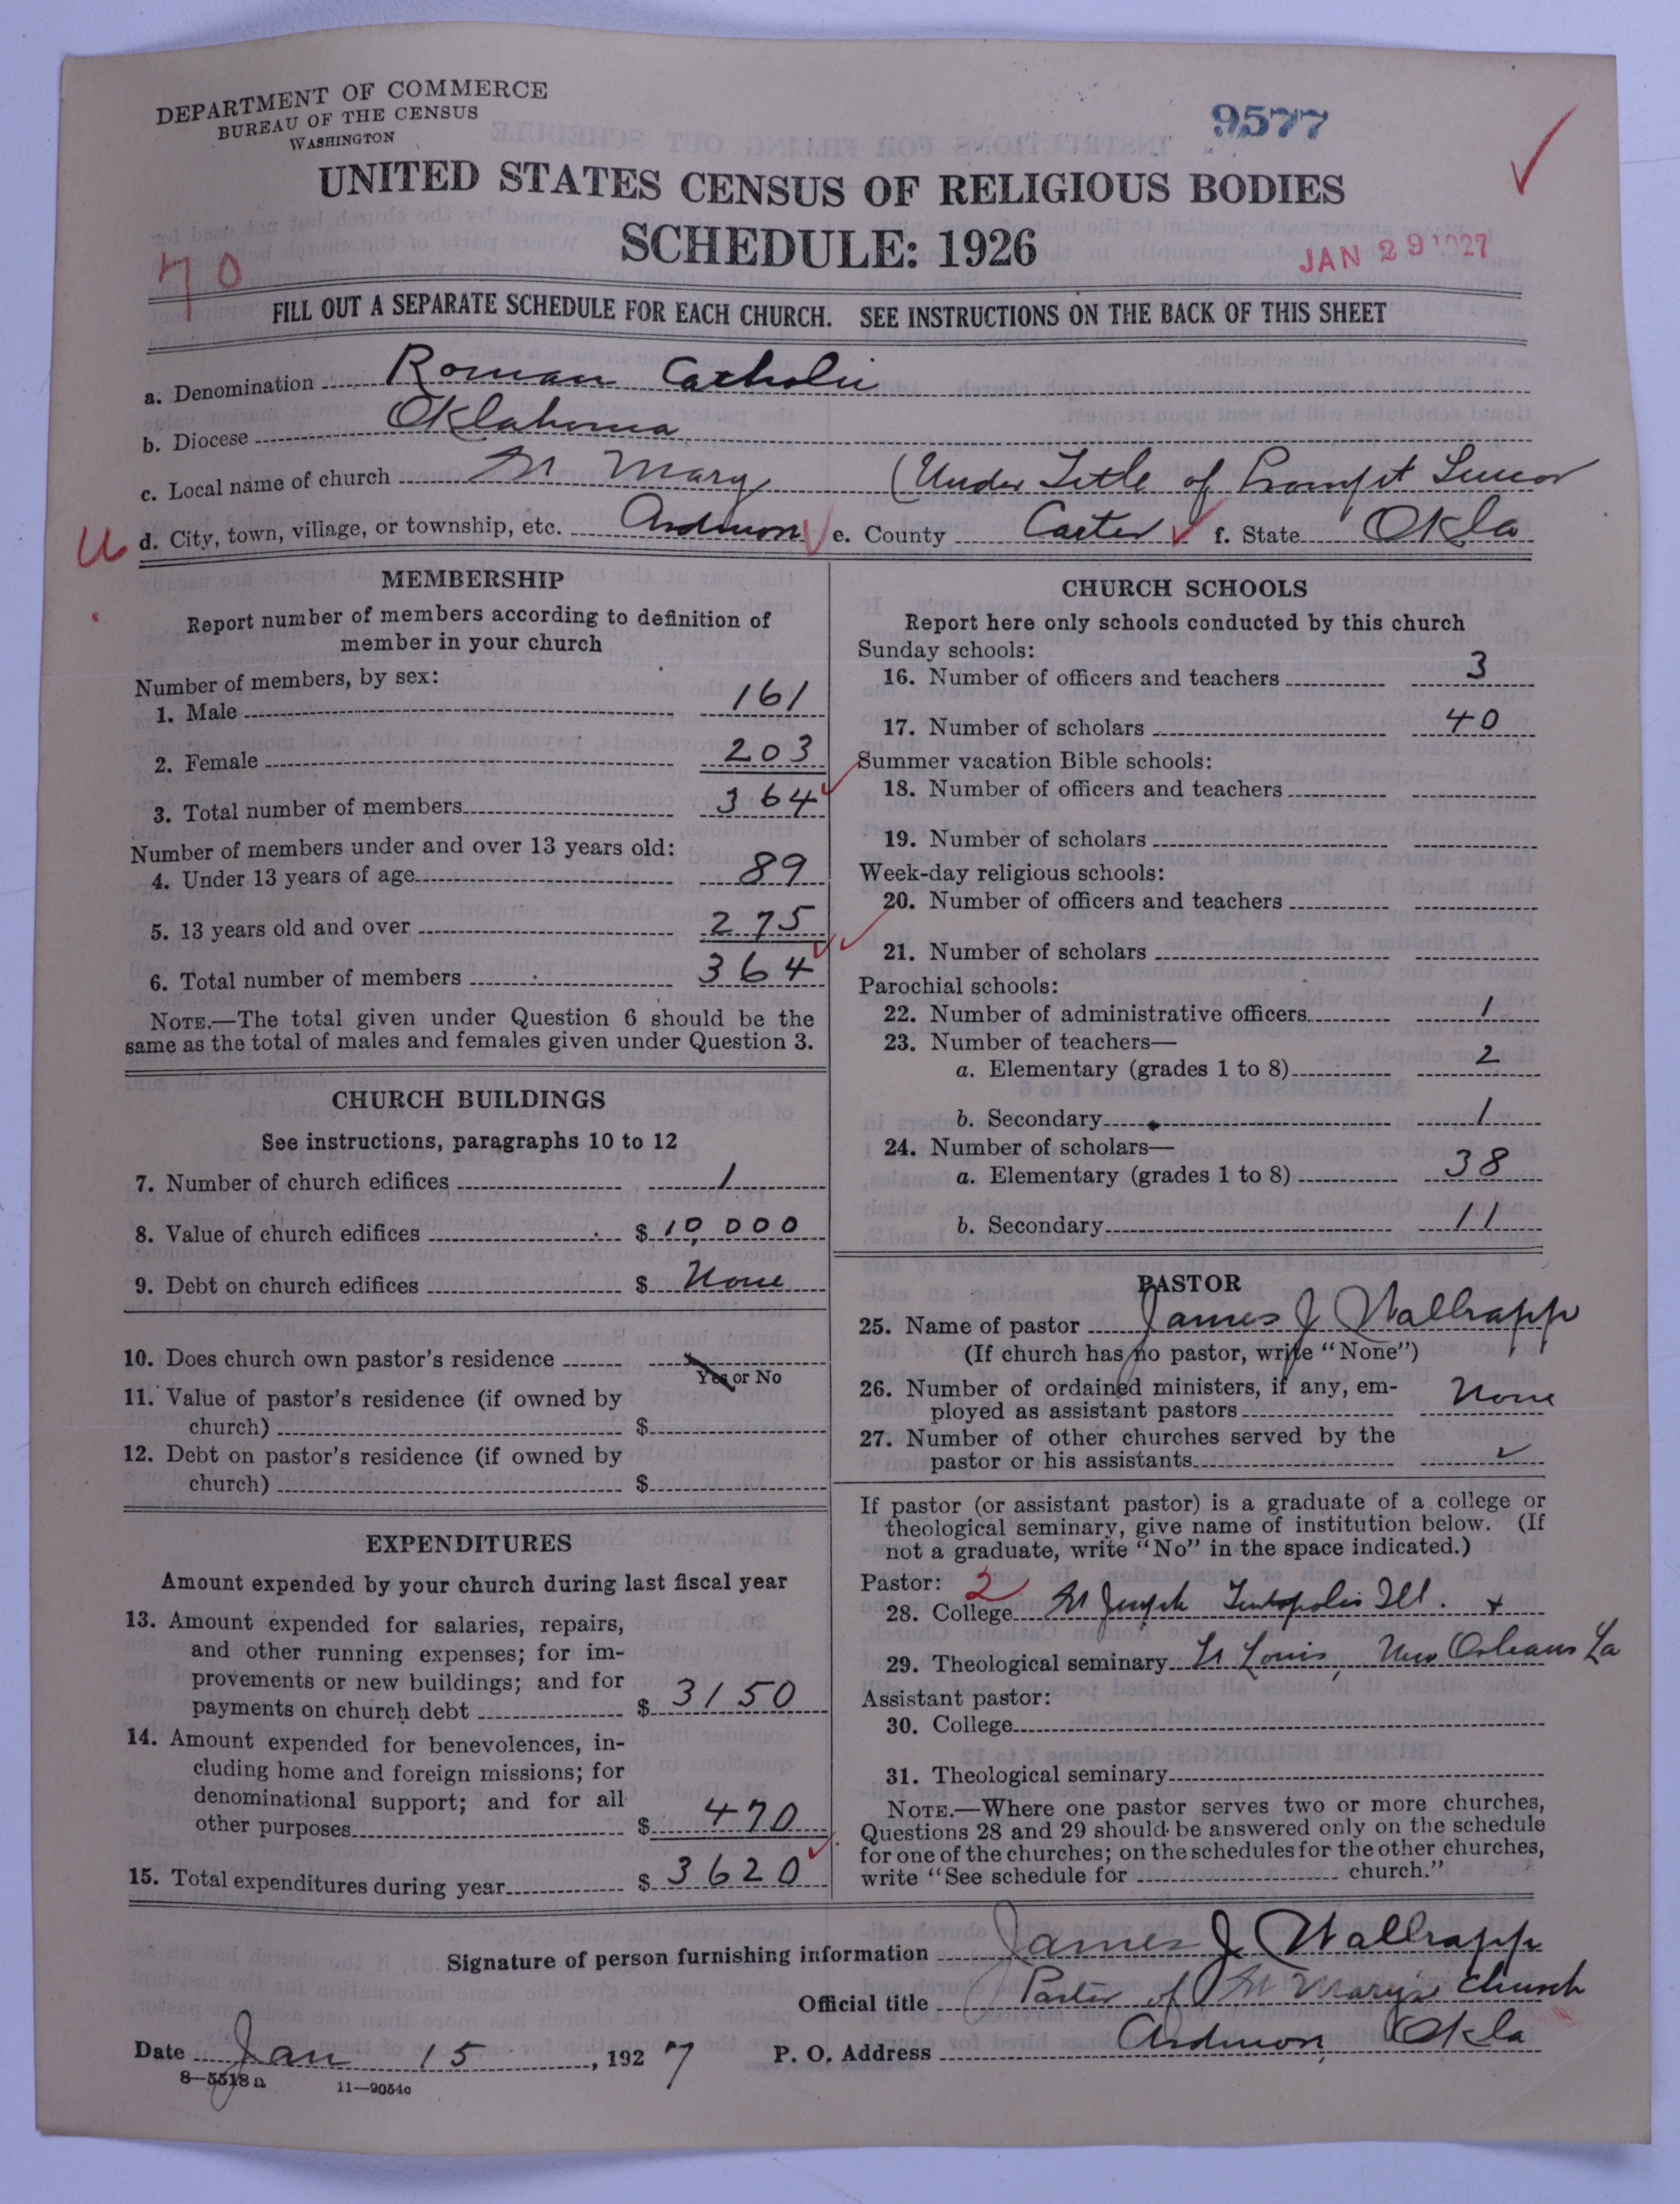 DEPARTMENT OF COMMERCE
BUREAU OF THE CENSUS
WASHINGTON
9577
UNITED STATES CENSUS OF RELIGIOUS BODIES
SCHEDULE: 1926
70
JAN 29 1927
FILL OUT A SEPARATE SCHEDULE FOR EACH CHURCH. SEE INSTRUCTIONS ON THE BACK OF THIS SHEET
a. Denomination Roman Catholic
b. Diocese Oklahoma
c. Local name of church St Mary (Under Title of Prompt Succor
d. City, town, village, or township, etc. Ardmore e. County Carter f. State Okla
MEMBERSHIP
Report number of members according to definition of
member in your church
Number of members, by sex:
1. Male 161
2. Female 203
3. Total number of members 364
Number of members under and over 13 years old:
4. Under 13 years of age 89
5. 13 years old and over 275
6. Total number of members 364
NOTE.—The total given under Question 6 should be the
same as the total of males and females given under Question 3.
CHURCH BUILDINGS
See instructions, paragraphs 10 to 12
7. Number of church edifices 1
8. Value of church edifices $ 10,000
9. Debt on church edifices $ None
10. Does church own pastor's residence
Yes or No
11. Value of pastor's residence (if owned by
church) $
12. Debt on pastor's residence (if owned by
church) $
EXPENDITURES
Amount expended by your church during last fiscal year
13. Amount expended for salaries, repairs,
and other running expenses; for im-
provements or new buildings; and for
payments on church debt $ 3150
14. Amount expended for benevolences, in-
cluding home and foreign missions; for
denominational support; and for all
other purposes $ 470
15. Total expenditures during year $ 3620
CHURCH SCHOOLS
Report here only schools conducted by this church
Sunday schools:
16. Number of officers and teachers 3
17. Number of scholars 40
Summer vacation Bible schools:
18. Number of officers and teachers
19. Number of scholars
Week-day religious schools:
20. Number of officers and teachers
21. Number of scholars
Parochial schools:
22. Number of administrative officers 1
23. Number of teachers—
a. Elementary (grades 1 to 8) 2
b. Secondary 1
24. Number of scholars—
a. Elementary (grades 1 to 8) 38
b. Secondary 11
PASTOR
25. Name of pastor James J Wallrapp
(If church has no pastor, write "None")
26. Number of ordained ministers, if any, em-
ployed as assistant pastors None
27. Number of other churches served by the
pastor or his assistants
If pastor (or assistant pastor) is a graduate of a college or
theological seminary, give name of institution below. (If
not a graduate, write "No" in the space indicated.)
Pastor: 2
28. College St Joseph Teutopolis Ill. +
29. Theological seminary St Louis, New Orleans La
Assistant pastor:
30. College
31. Theological seminary
NOTE.—Where one pastor serves two or more churches,
Questions 28 and 29 should be answered only on the schedule
for one of the churches; on the schedules for the other churches,
write "See schedule for church."
Signature of person furnishing information James J Wallrapp
Official title Pastor of St Mary's Church
Date Jan 15, 1927 P. O. Address Ardmore, Okla
8—5518a 11—9054c